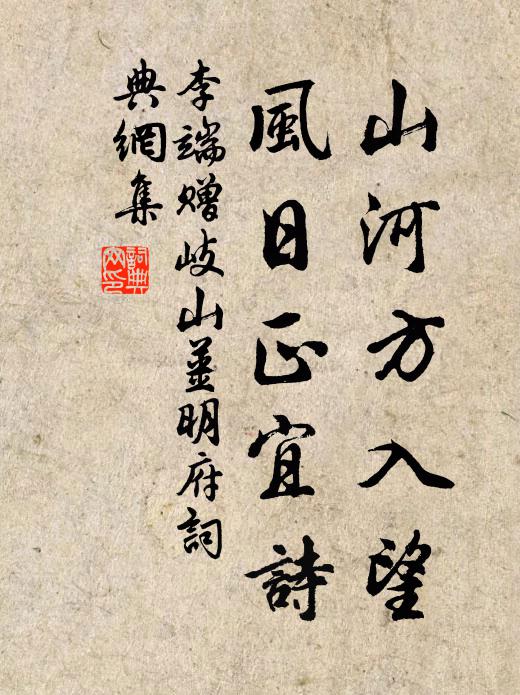 山河方入望
風日正宜詩
李端贈岐山姜明府詞
典網集
詞典
网印